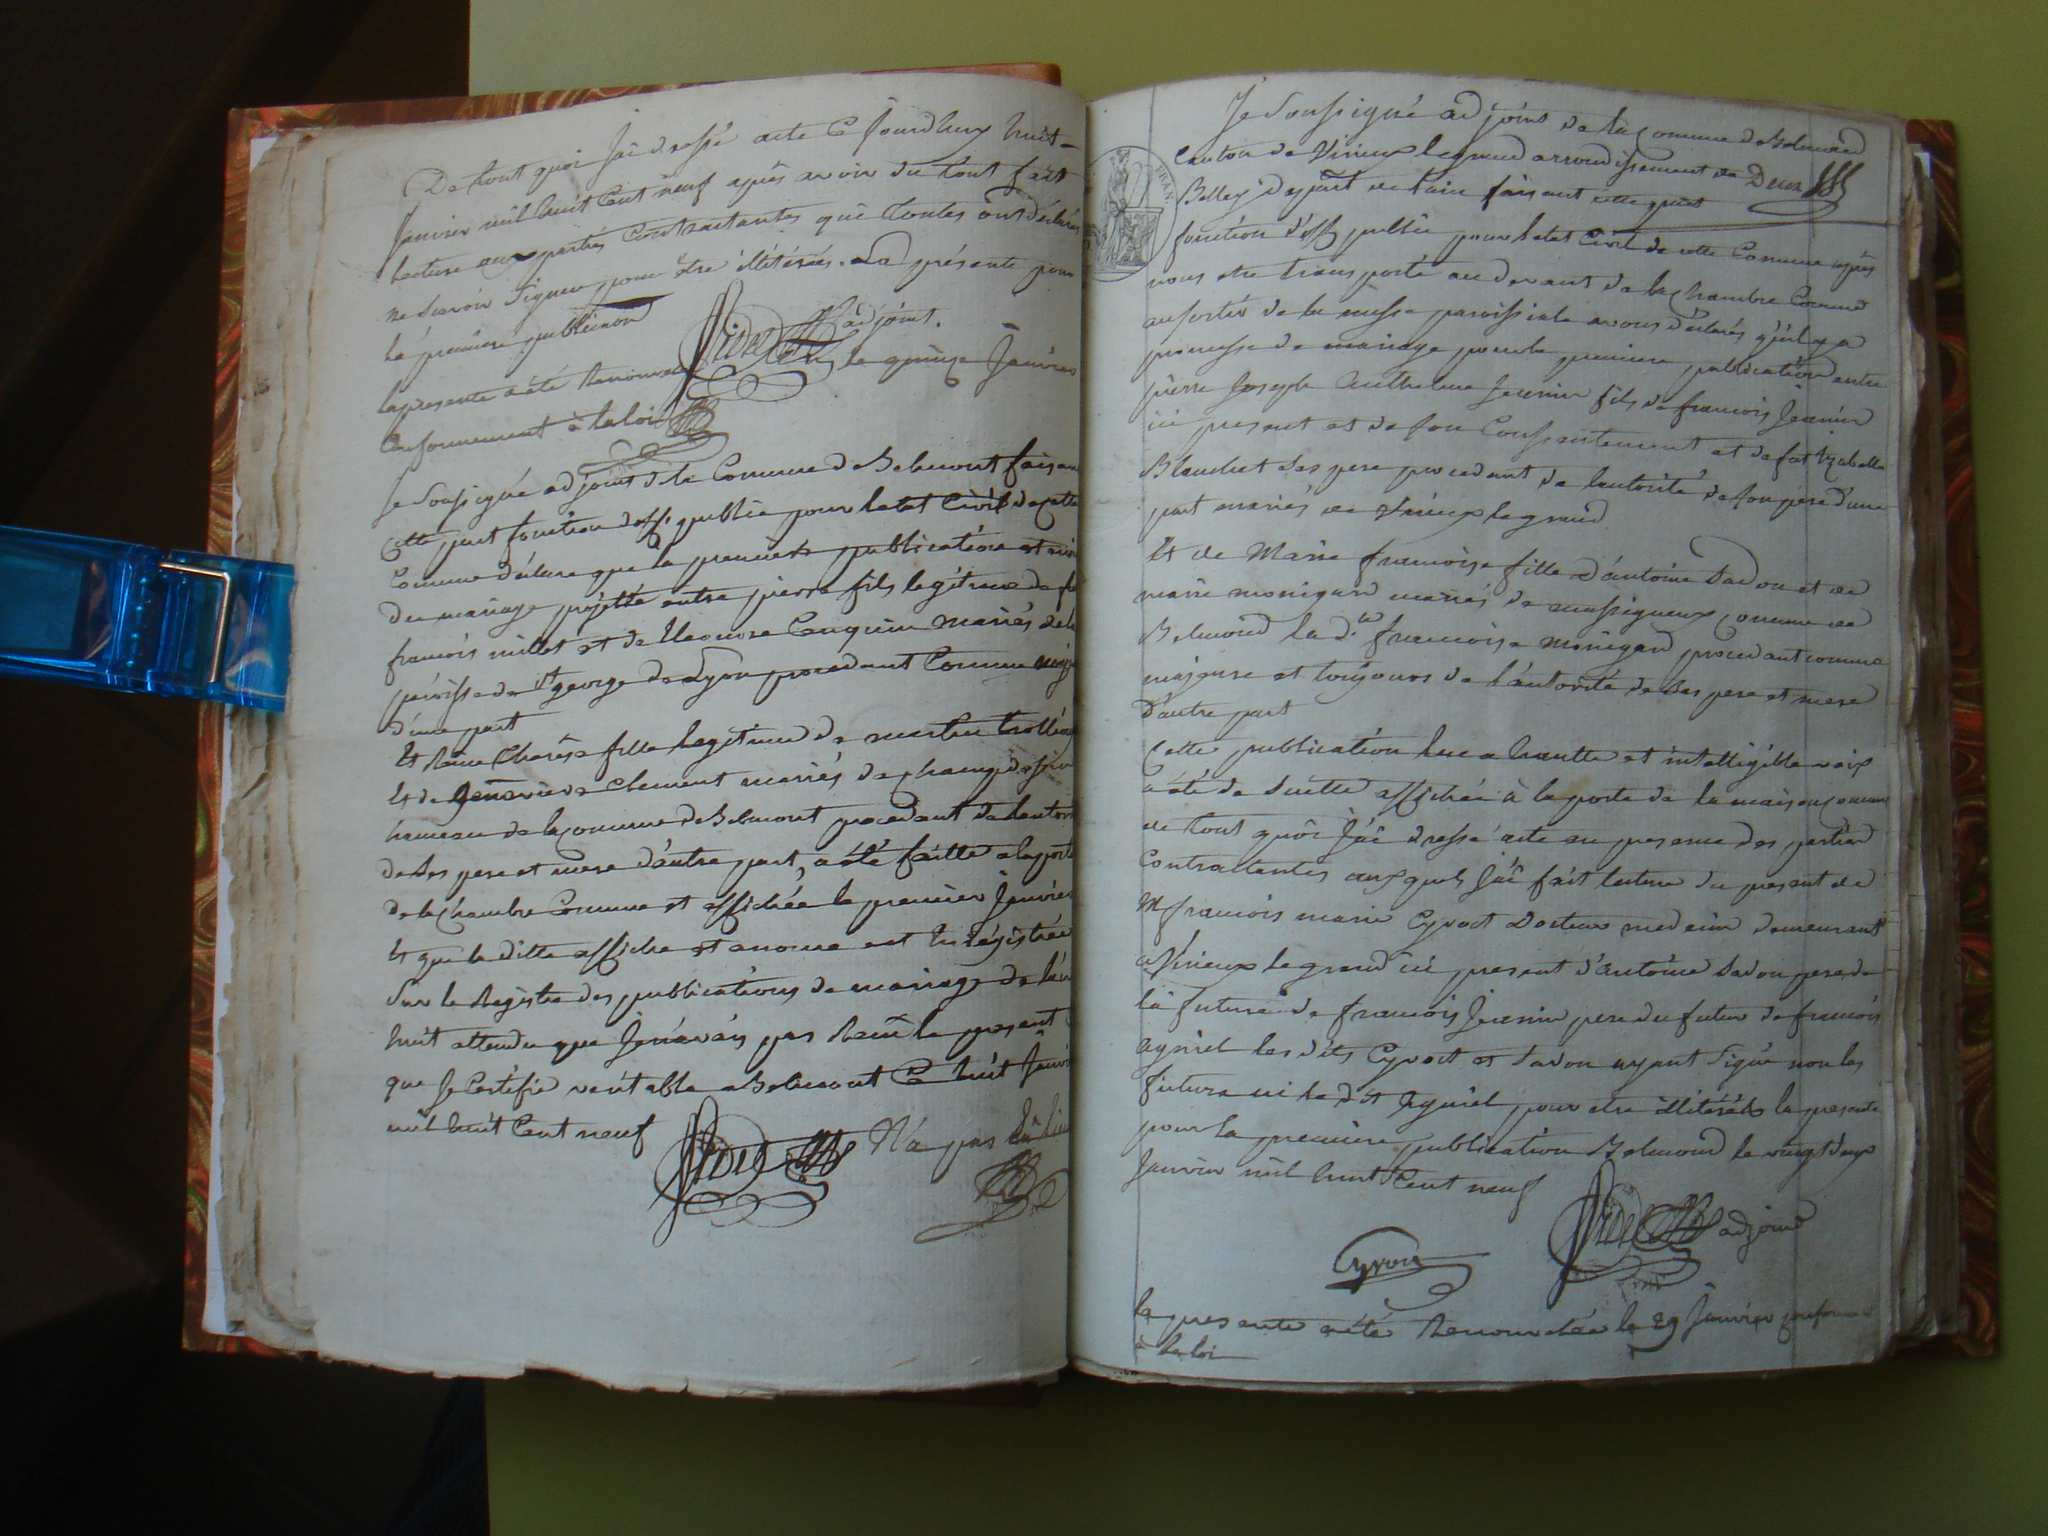 De tout quoi J'ai dressé acte Ce Jourdhuy huit
Janvier mil huit Cent neuf après avoir du tout fait
lecture aux parties Contractantes qui toutes ont déclarés
ne Scavoir Signer pour être illitérés. La présente pour
la première publication
adjoint.
la presente a été Renouvellé le quinze Janvier
Conformement à la loi
Je Soussigné adjoint de la Commune de Belmont faisant
Cette part fonction d'off. public pour letat Civil de Cette
Commune déclare que la premiere publication
du mariage projetté entre pierre fils legitime de
françois millet et de Eleonore mariés de la
paroisse de st george de Lyon procedant Comme
d'une part
Et Reine Therese fille legitime de
Et de genevieve Clement mariés de
hameau de la Commune de Belmont procedant de
de Ses pere et mere d'autre part, a été faitte a la porte
de la Chambre Commune et affichée le premier Janvier
Et que la ditte affiche et annonce est Enrégistrée
Sur le Registre des publications de mariage de
huit attendu que Je n'avais pas Recu le present
que Je Certifie veritable a Belmont Ce huit Janvier
mil huit Cent neuf
N'a pas
Je Soussigné adjoint de la Commune de Belmond
Canton de Virieux legrand arrondissement de
Deux
Belley depart. de lain faisant cette part
fonction d'off. public pour letat Civil de cette Commune après
nous etre transporté au devant de la Chambre Commune
au sortir de la messe paroissiale avons déclarés qu'il y a
promesse de mariage pour la premiere publication entre
pierre Joseph Anthelme Jeanin fils de francois Jeanin
ici present et de son Consentement et de
Blanchet Ses pere procedant de l'autorité de son pere d'une
part mariés de Virieux le grand
Et de Marie francoise fille d'antoine Savon et de
marie monigard mariés de massigneux Commune de
Belmond la d.te francoise monigard procedant comme
majeure et toujours de l'autorité de Ses pere et mere
d'autre part
Cette publication lue a hautte et intelligible voix
a été de Suitte affichée à la porte de la maison Commune
de tout quoi J'ai dressé acte en presence des parties
Contractantes auxquels J'ai fait lecture du present de
M francois marie Cyvoct Docteur medecin demeurant
a Virieux le grand ici present d'antoine Savon pere de
la future de francois Jeanin pere du futur de francois
ayniel les dits Cyvoct et Savon ayant Signé non les
futurs ni le dit Ayniel pour etre illitérés la presente
pour la premiere publication Belmond le vingt deux
Janvier mil huit Cent neuf
adjoint
la presente a été Renouvelée le 29 Janvier
à la loi